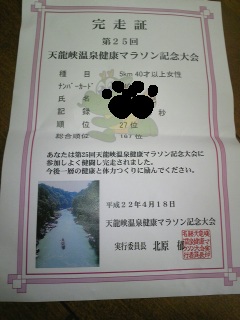 完走証
第25回
天龍峡温泉健康マラソン記念大会
種 目 5km 40才以上女性
ﾅﾝﾊﾞｰｶｰﾄﾞ
氏 名
記 録 秒
順 位 27位
総合順位 197位
あなたは第25回天龍峡温泉健康マラソン記念大会に
参加しよく健闘し完走されました。
今後一層の健康と体力つくりに励んでください。
平成22年4月18日
天龍峡温泉健康マラソン記念大会
実行委員長 北原 郁